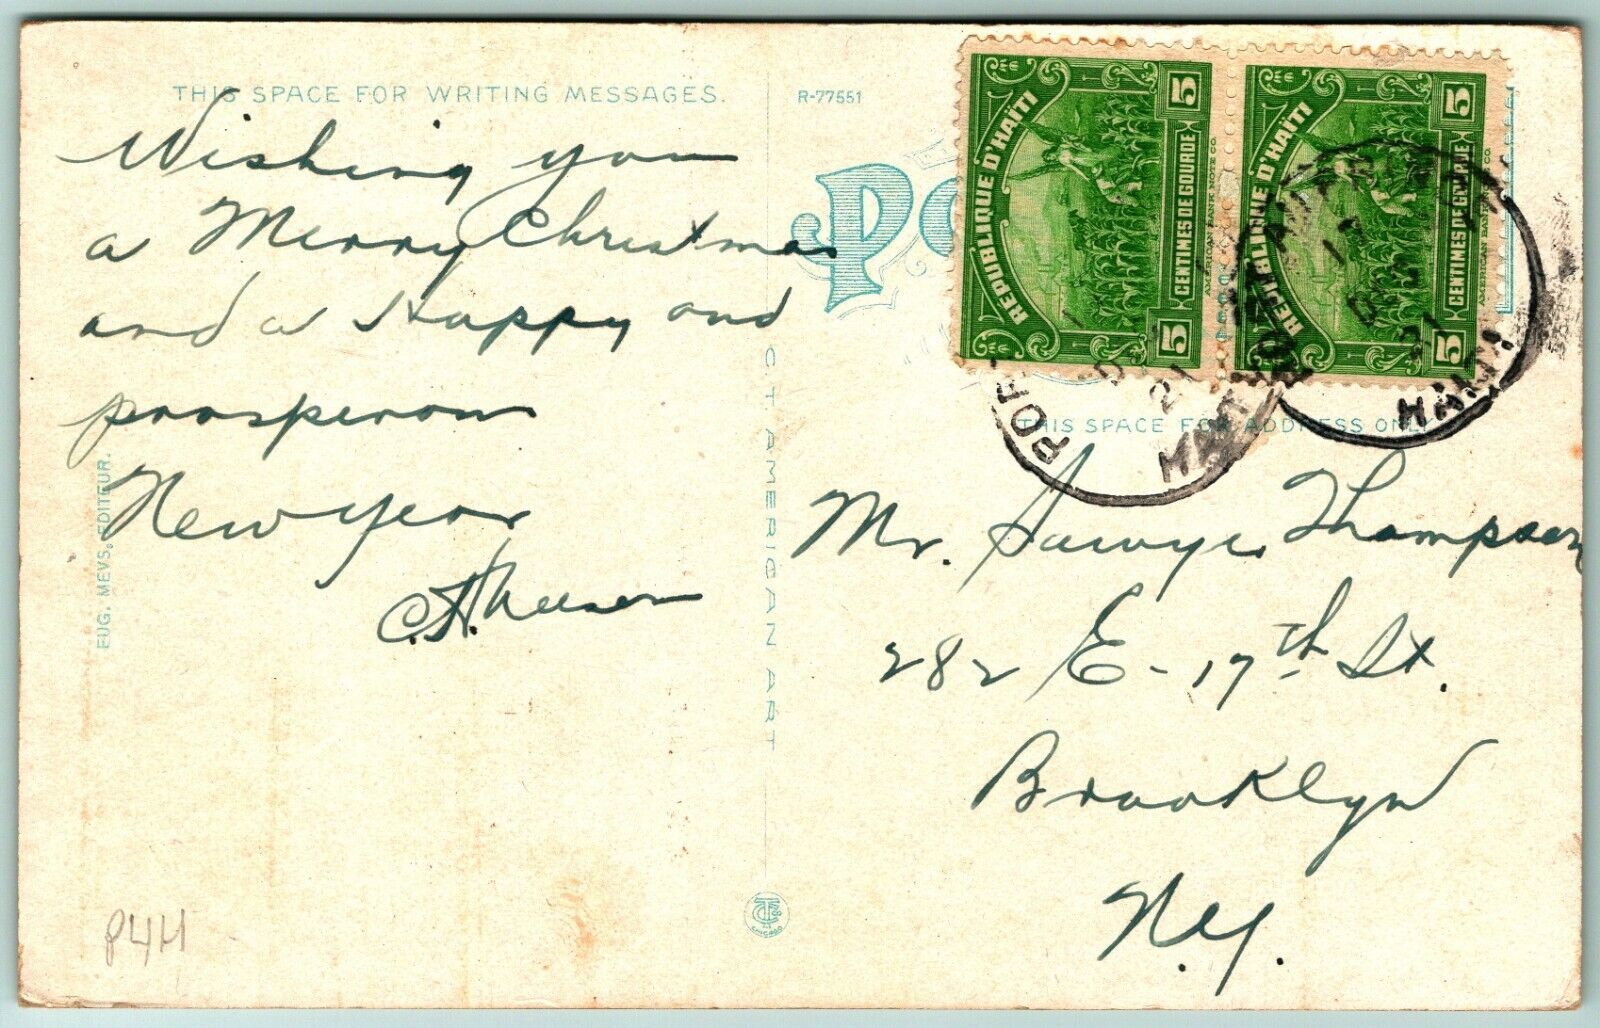 THIS SPACE FOR WRITING MESSAGES.
Wishing you
a Merry Christmas
and a Happy and
prosperous
New Year
C.A.
EUG. MEVS, EDITEUR.
C. T. AMERICAN ART
CHICAGO
P4H
R-77551
PO
REPUBLIQUE D'HAÏTI
5 CENTIMES DE GOURDE 5
AMERICAN BANK NOTE CO.
REPUBLIQUE D'HAÏTI
5 CENTIMES DE GOURDE 5
AMERICAN BANK NOTE CO.
PORT
HAITI
HAITI
THIS SPACE FOR ADDRESS ONLY
Mr. Sawyer Thompson
282 E-17th St.
Brooklyn
N.Y.